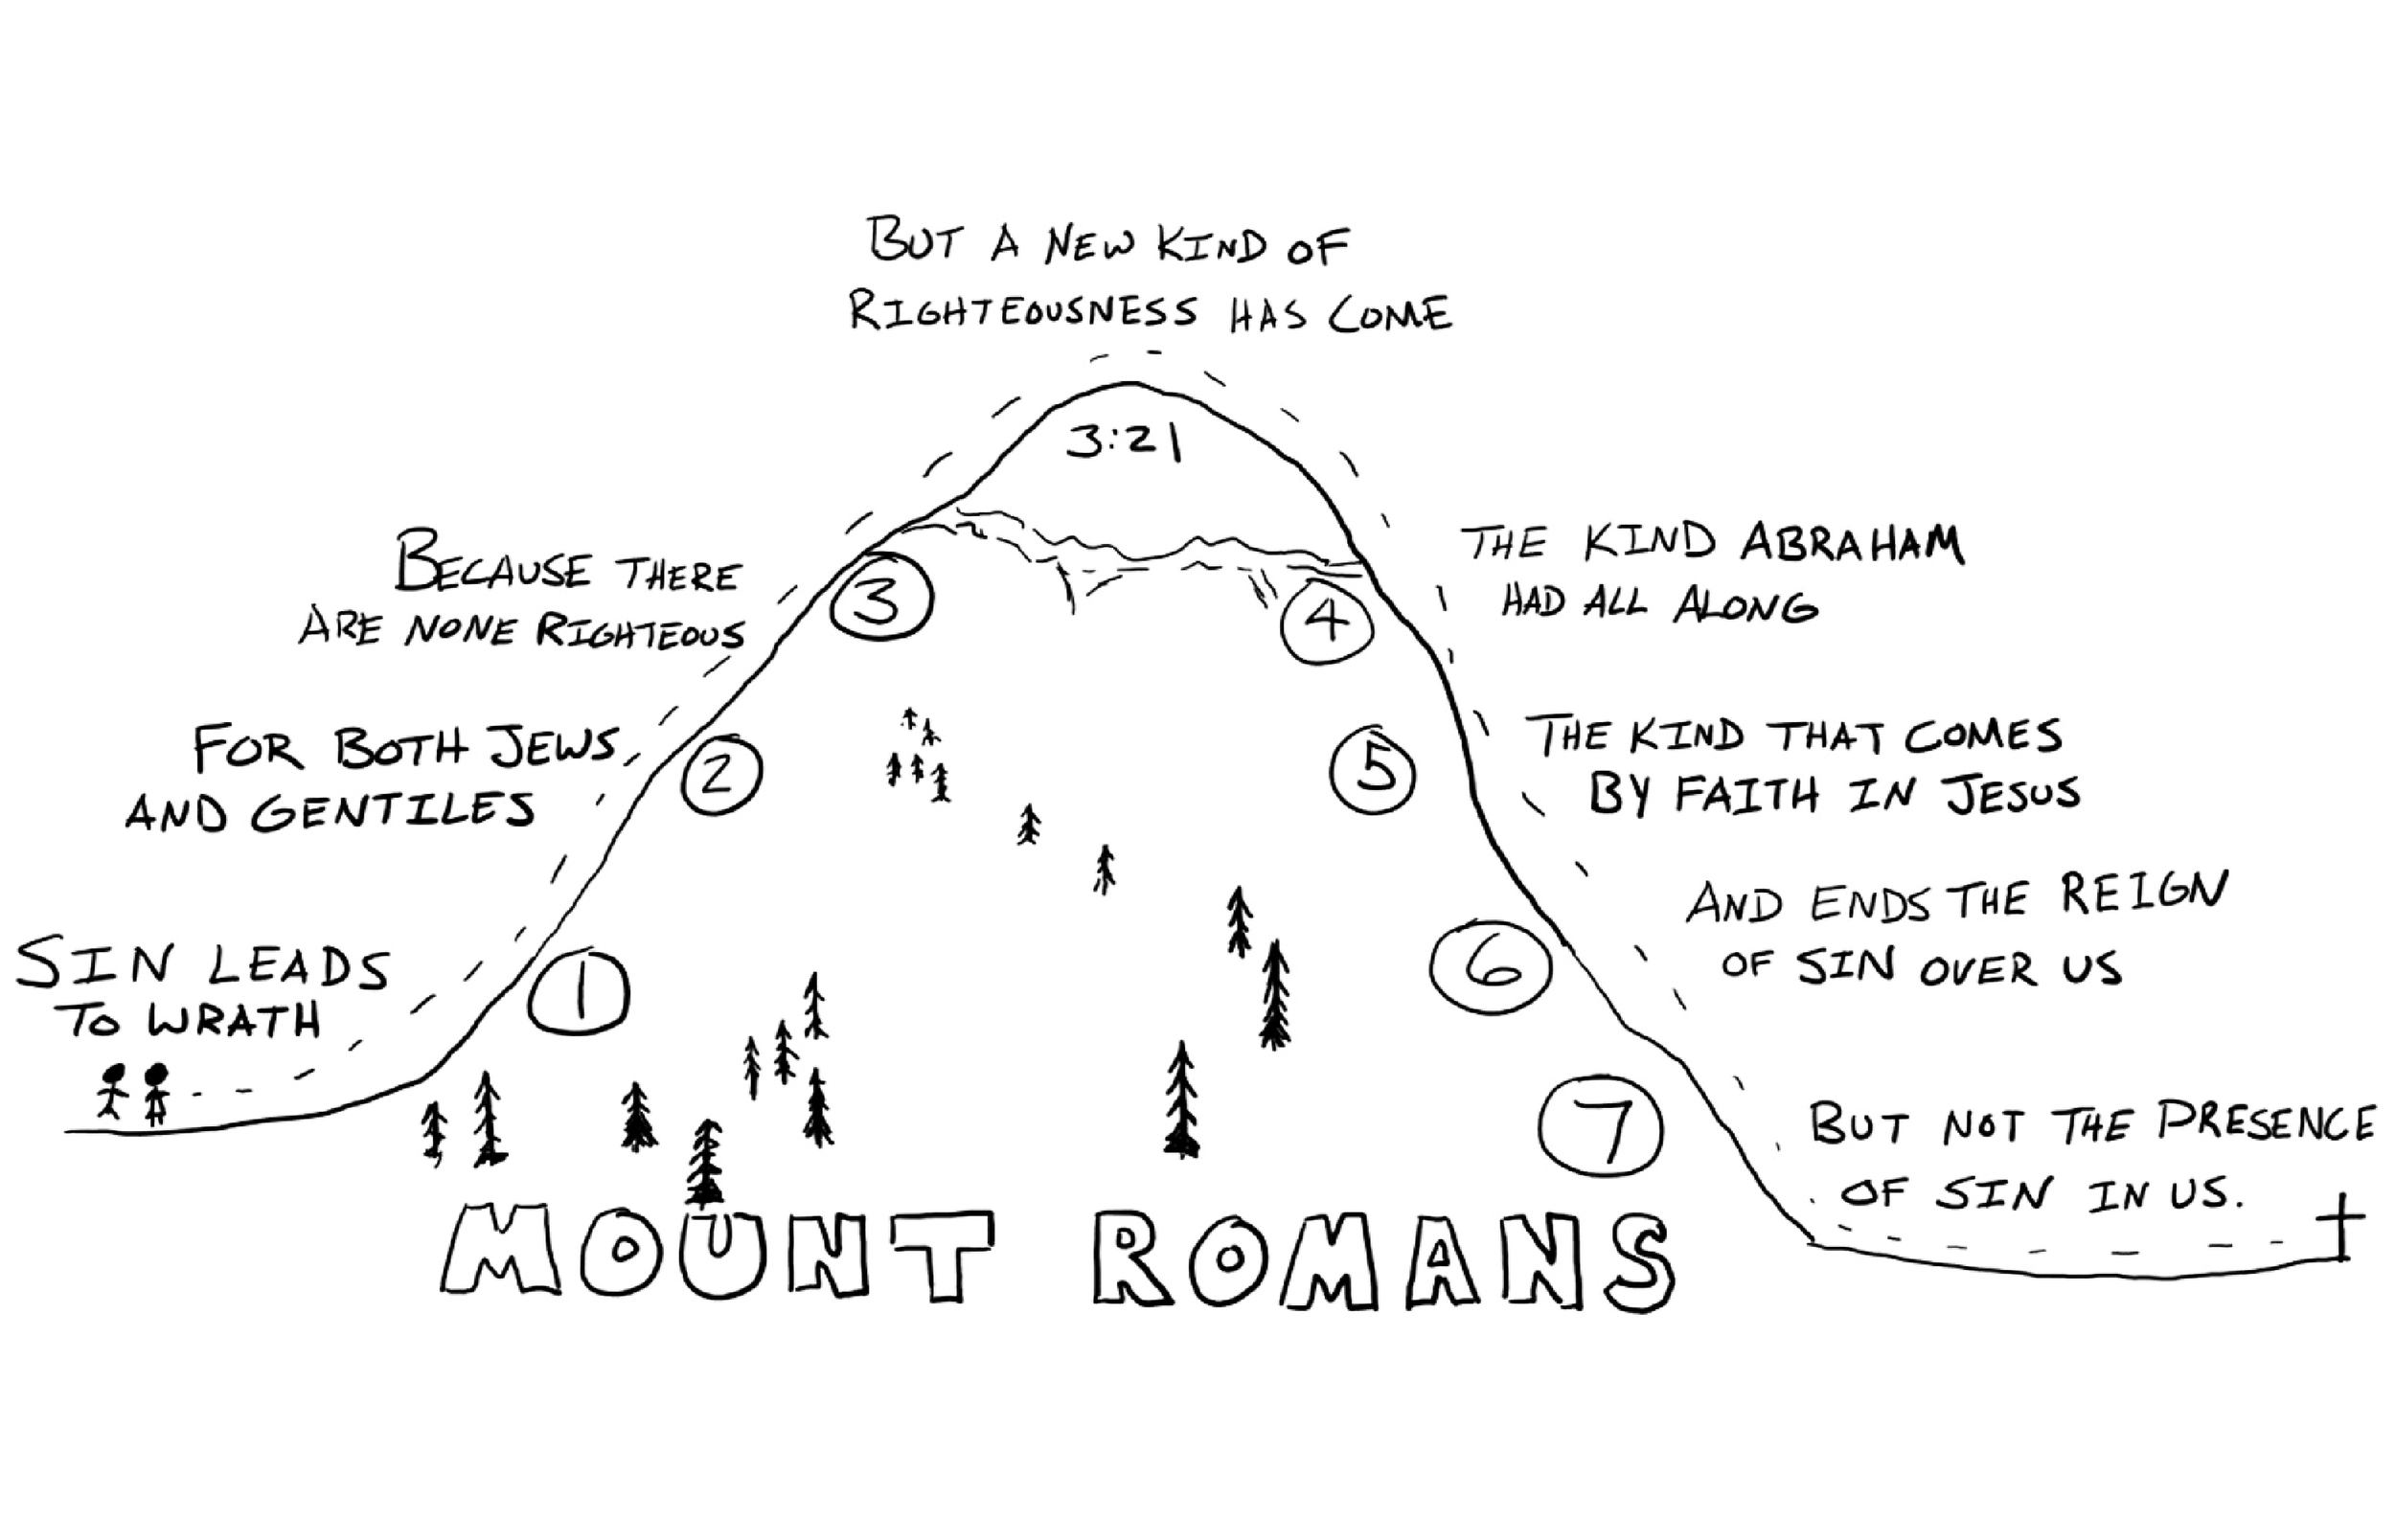 BUT A NEW KIND OF
RIGHTEOUSNESS HAS COME
3:21
BECAUSE THERE
ARE NONE RIGHTEOUS
3
THE KIND ABRAHAM
HAD ALL ALONG
4
FOR BOTH JEWS
AND GENTILES
2
THE KIND THAT COMES
BY FAITH IN JESUS
5
SIN LEADS
TO WRATH
1
AND ENDS THE REIGN
OF SIN OVER US
6
BUT NOT THE PRESENCE
OF SIN IN US.
7
MOUNT ROMANS